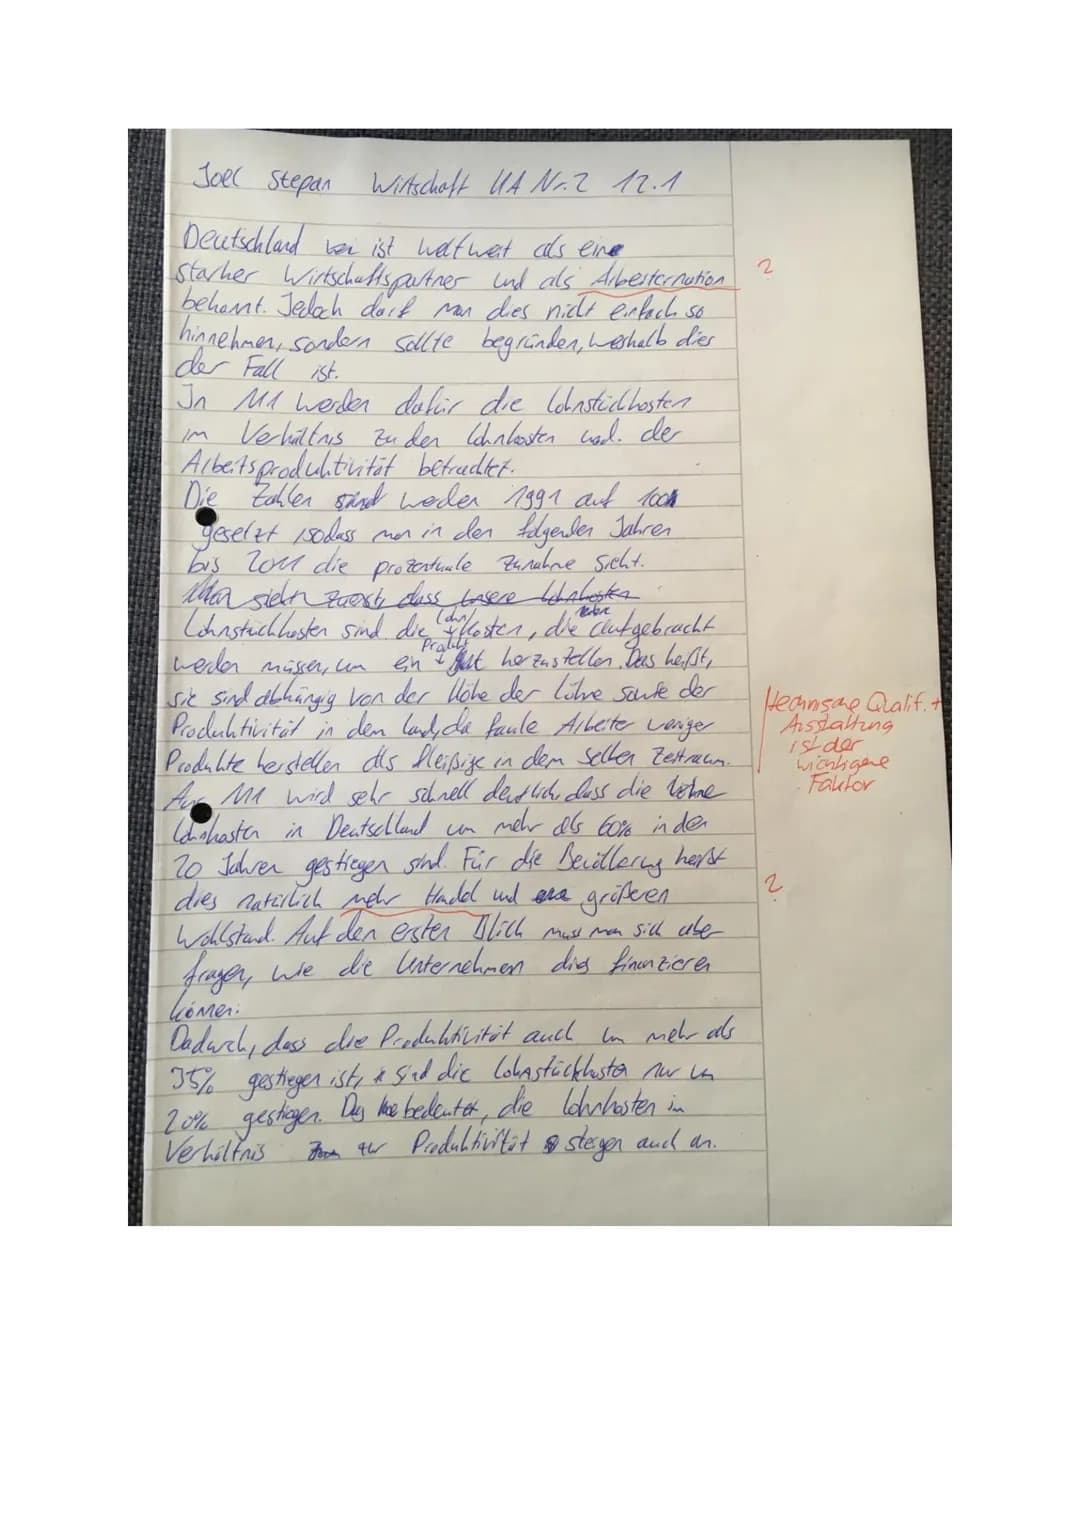 Joel Stepan Wirtschaft KA Nr.2 12.1
Deutschland ist weltweit als eine
starker Wirtschaftspartner und als Arbeiternation
?
bekannt. Jedoch darf man dies nicht einfach so
hinnehmen, sondern sollte begründen, weshalb dies
der Fall ist.
In M1 werden dafür die Lohnstückkosten
im Verhältnis zu den Lohnkosten und der
Arbeitsproduktivität betrachtet.
Die Zahlen werden 1991 auf 100
gesetzt, sodass man in den folgenden Jahren
bis 2011 die prozentuale Zunahme sieht.
Man sieht zuerst, dass unsere Lohnkosten
Lohnstückkosten sind die Lohnkosten, die aufgebracht
werden müssen, um ein Produkt herzustellen. Das heißt,
sie sind abhängig von der Höhe der Löhne sowie der
Produktivität in dem Land, da faule Arbeiter weniger
Produkte herstellen als fleißige in dem selben Zeitraum.
technische Qualif. +
Ausstattung
ist der
wichtigere
Faktor
Aus M1 wird sehr schnell deutlich, dass die Löhne
Lohnkosten in Deutschland um mehr als 60% in den
20 Jahren gestiegen sind. Für die Bevölkerung heißt
dies natürlich mehr Handel und größeren
?
Wohlstand. Auf den ersten Blick muss man sich aber
fragen, wie die Unternehmen dies finanzieren
können.
Dadurch, dass die Produktivität auch um mehr als
35% gestiegen ist, sind die Lohnstückkosten nur um
20% gestiegen. Das bedeutet, die Lohnkosten im
Verhältnis zur Produktivität steigen auch an.